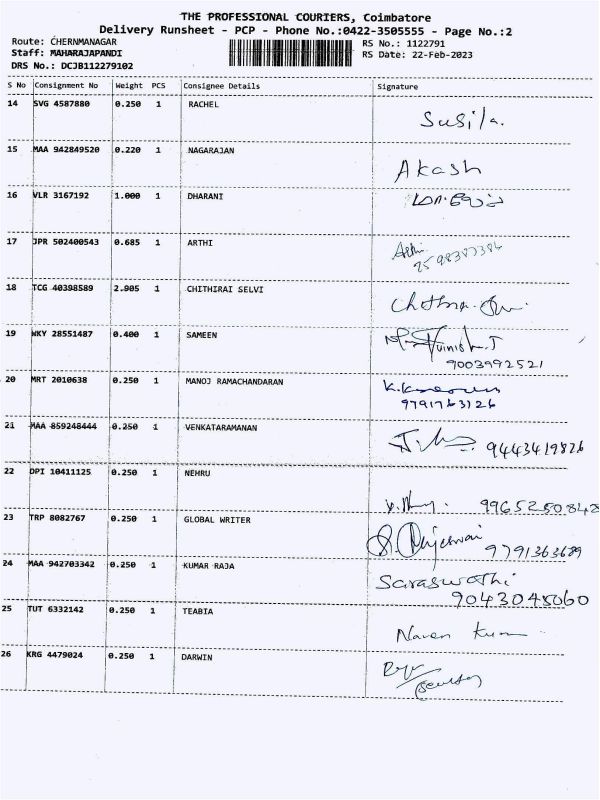 THE PROFESSIONAL COURIERS, Coimbatore
Delivery Runsheet - PCP - Phone No.:0422-3505555 - Page No.:2
Route: CHERNMANAGAR
Staff: MAHARAJAPANDI
DRS No.: DCJB112279102
RS No.: 1122791
RS Date: 22-Feb-2023
S No Consignment No Weight PCS Consignee Details Signature
14 SVG 4587880 0.250 1 RACHEL Susila.
15 MAA 942849520 0.220 1 NAGARAJAN Akash
16 VLR 3167192 1.000 1 DHARANI
17 JPR 502400543 0.685 1 ARTHI Arthi
18 TCG 40398589 2.905 1 CHITHIRAI SELVI
19 WKY 28551487 0.400 1 SAMEEN
9003992521
20 MRT 2010638 0.250 1 MANOJ RAMACHANDARAN
9791763126
21 MAA 859248444 0.250 1 VENKATARAMANAN 9443419826
22 DPI 10411125 0.250 1 NEHRU 9965250842
23 TRP 8082767 0.250 1 GLOBAL WRITER
9791363689
24 MAA 942703342 0.250 1 KUMAR RAJA Saraswathi
9043045060
25 TUT 6332142 0.250 1 TEABIA Naven Kum
26 KRG 4479024 0.250 1 DARWIN